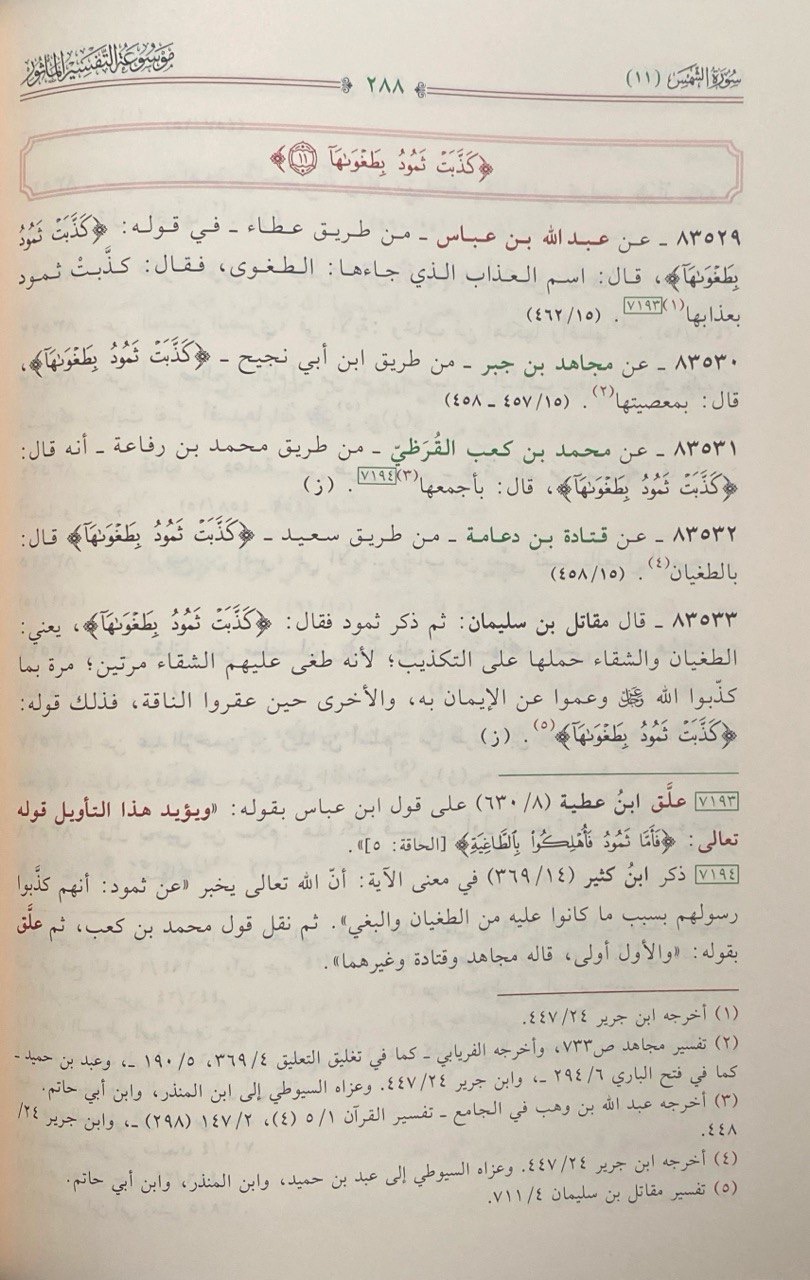 سُورَةُ الشَّمْسِ (١١)
٢٨٨
مَوْسُوعَةُ التَّفْسِيرِ المَأْثُورِ
﴿كَذَّبَتْ ثَمُودُ بِطَغْوَىٰهَآ ١١﴾
٨٣٥٢٩ ـ عن عبد الله بن عباس ـ من طريق عطاء ـ في قوله: ﴿كَذَّبَتْ ثَمُودُ
بِطَغْوَىٰهَآ﴾، قال: اسم العذاب الذي جاءها: الطغوى، فقال: كذَّبتْ ثمود
بعذابها(١)[٧١٩٣]. (٤٦٢/١٥)
٨٣٥٣٠ ـ عن مجاهد بن جبر ـ من طريق ابن أبي نجيح ـ ﴿كَذَّبَتْ ثَمُودُ بِطَغْوَىٰهَآ﴾،
قال: بمعصيتها(٢). (٤٥٧/١٥ ـ ٤٥٨)
٨٣٥٣١ ـ عن محمد بن كعب القُرَظيّ ـ من طريق محمد بن رفاعة ـ أنه قال:
﴿كَذَّبَتْ ثَمُودُ بِطَغْوَىٰهَآ﴾، قال: بأجمعها(٣)[٧١٩٤]. (ز)
٨٣٥٣٢ ـ عن قتادة بن دعامة ـ من طريق سعيد ـ ﴿كَذَّبَتْ ثَمُودُ بِطَغْوَىٰهَآ﴾ قال:
بالطغيان(٤). (٤٥٨/١٥)
٨٣٥٣٣ ـ قال مقاتل بن سليمان: ثم ذكر ثمود فقال: ﴿كَذَّبَتْ ثَمُودُ بِطَغْوَىٰهَآ﴾، يعني:
الطغيان والشقاء حملها على التكذيب؛ لأنه طغى عليهم الشقاء مرتين؛ مرة بما
كذّبوا الله ﷿ وعموا عن الإيمان به، والأخرى حين عقروا الناقة، فذلك قوله:
﴿كَذَّبَتْ ثَمُودُ بِطَغْوَىٰهَآ﴾(٥). (ز)
[٧١٩٣] علَّق ابنُ عطية (٦٣٠/٨) على قول ابن عباس بقوله: «ويؤيد هذا التأويل قوله
تعالى: ﴿فَأَمَّا ثَمُودُ فَأُهْلِكُوا۟ بِٱلطَّاغِيَةِ﴾ [الحاقة: ٥]».
[٧١٩٤] ذكر ابنُ كثير (٣٦٩/١٤) في معنى الآية: أنّ الله تعالى يخبر «عن ثمود: أنهم كذَّبوا
رسولهم بسبب ما كانوا عليه من الطغيان والبغي». ثم نقل قول محمد بن كعب، ثم علَّق
بقوله: «والأول أولى، قاله مجاهد وقتادة وغيرهما».
(١) أخرجه ابن جرير ٤٤٧/٢٤.
(٢) تفسير مجاهد ص٧٣٣، وأخرجه الفريابي ـ كما في تغليق التعليق ٣٦٩/٤، ١٩٠/٥ ـ، وعبد بن حميد ـ
كما في فتح الباري ٢٩٤/٦ ـ، وابن جرير ٤٤٧/٢٤. وعزاه السيوطي إلى ابن المنذر، وابن أبي حاتم.
(٣) أخرجه عبد الله بن وهب في الجامع ـ تفسير القرآن ٥/١ (٤)، ١٤٧/٢ (٢٩٨) ـ، وابن جرير ٢٤/
٤٤٨.
(٤) أخرجه ابن جرير ٤٤٧/٢٤. وعزاه السيوطي إلى عبد بن حميد، وابن المنذر، وابن أبي حاتم.
(٥) تفسير مقاتل بن سليمان ٧١١/٤.